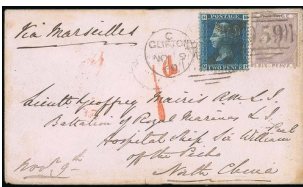 Via Marseilles
C
CLIFTON
NO 9
TWO PENCE
Lieut Geoffrey Mairis R.M.L.I.
Battalion of Royal Marines L.I.
Hospital Ship Sir William Peel
off the Peiho
North China
Novr 9th